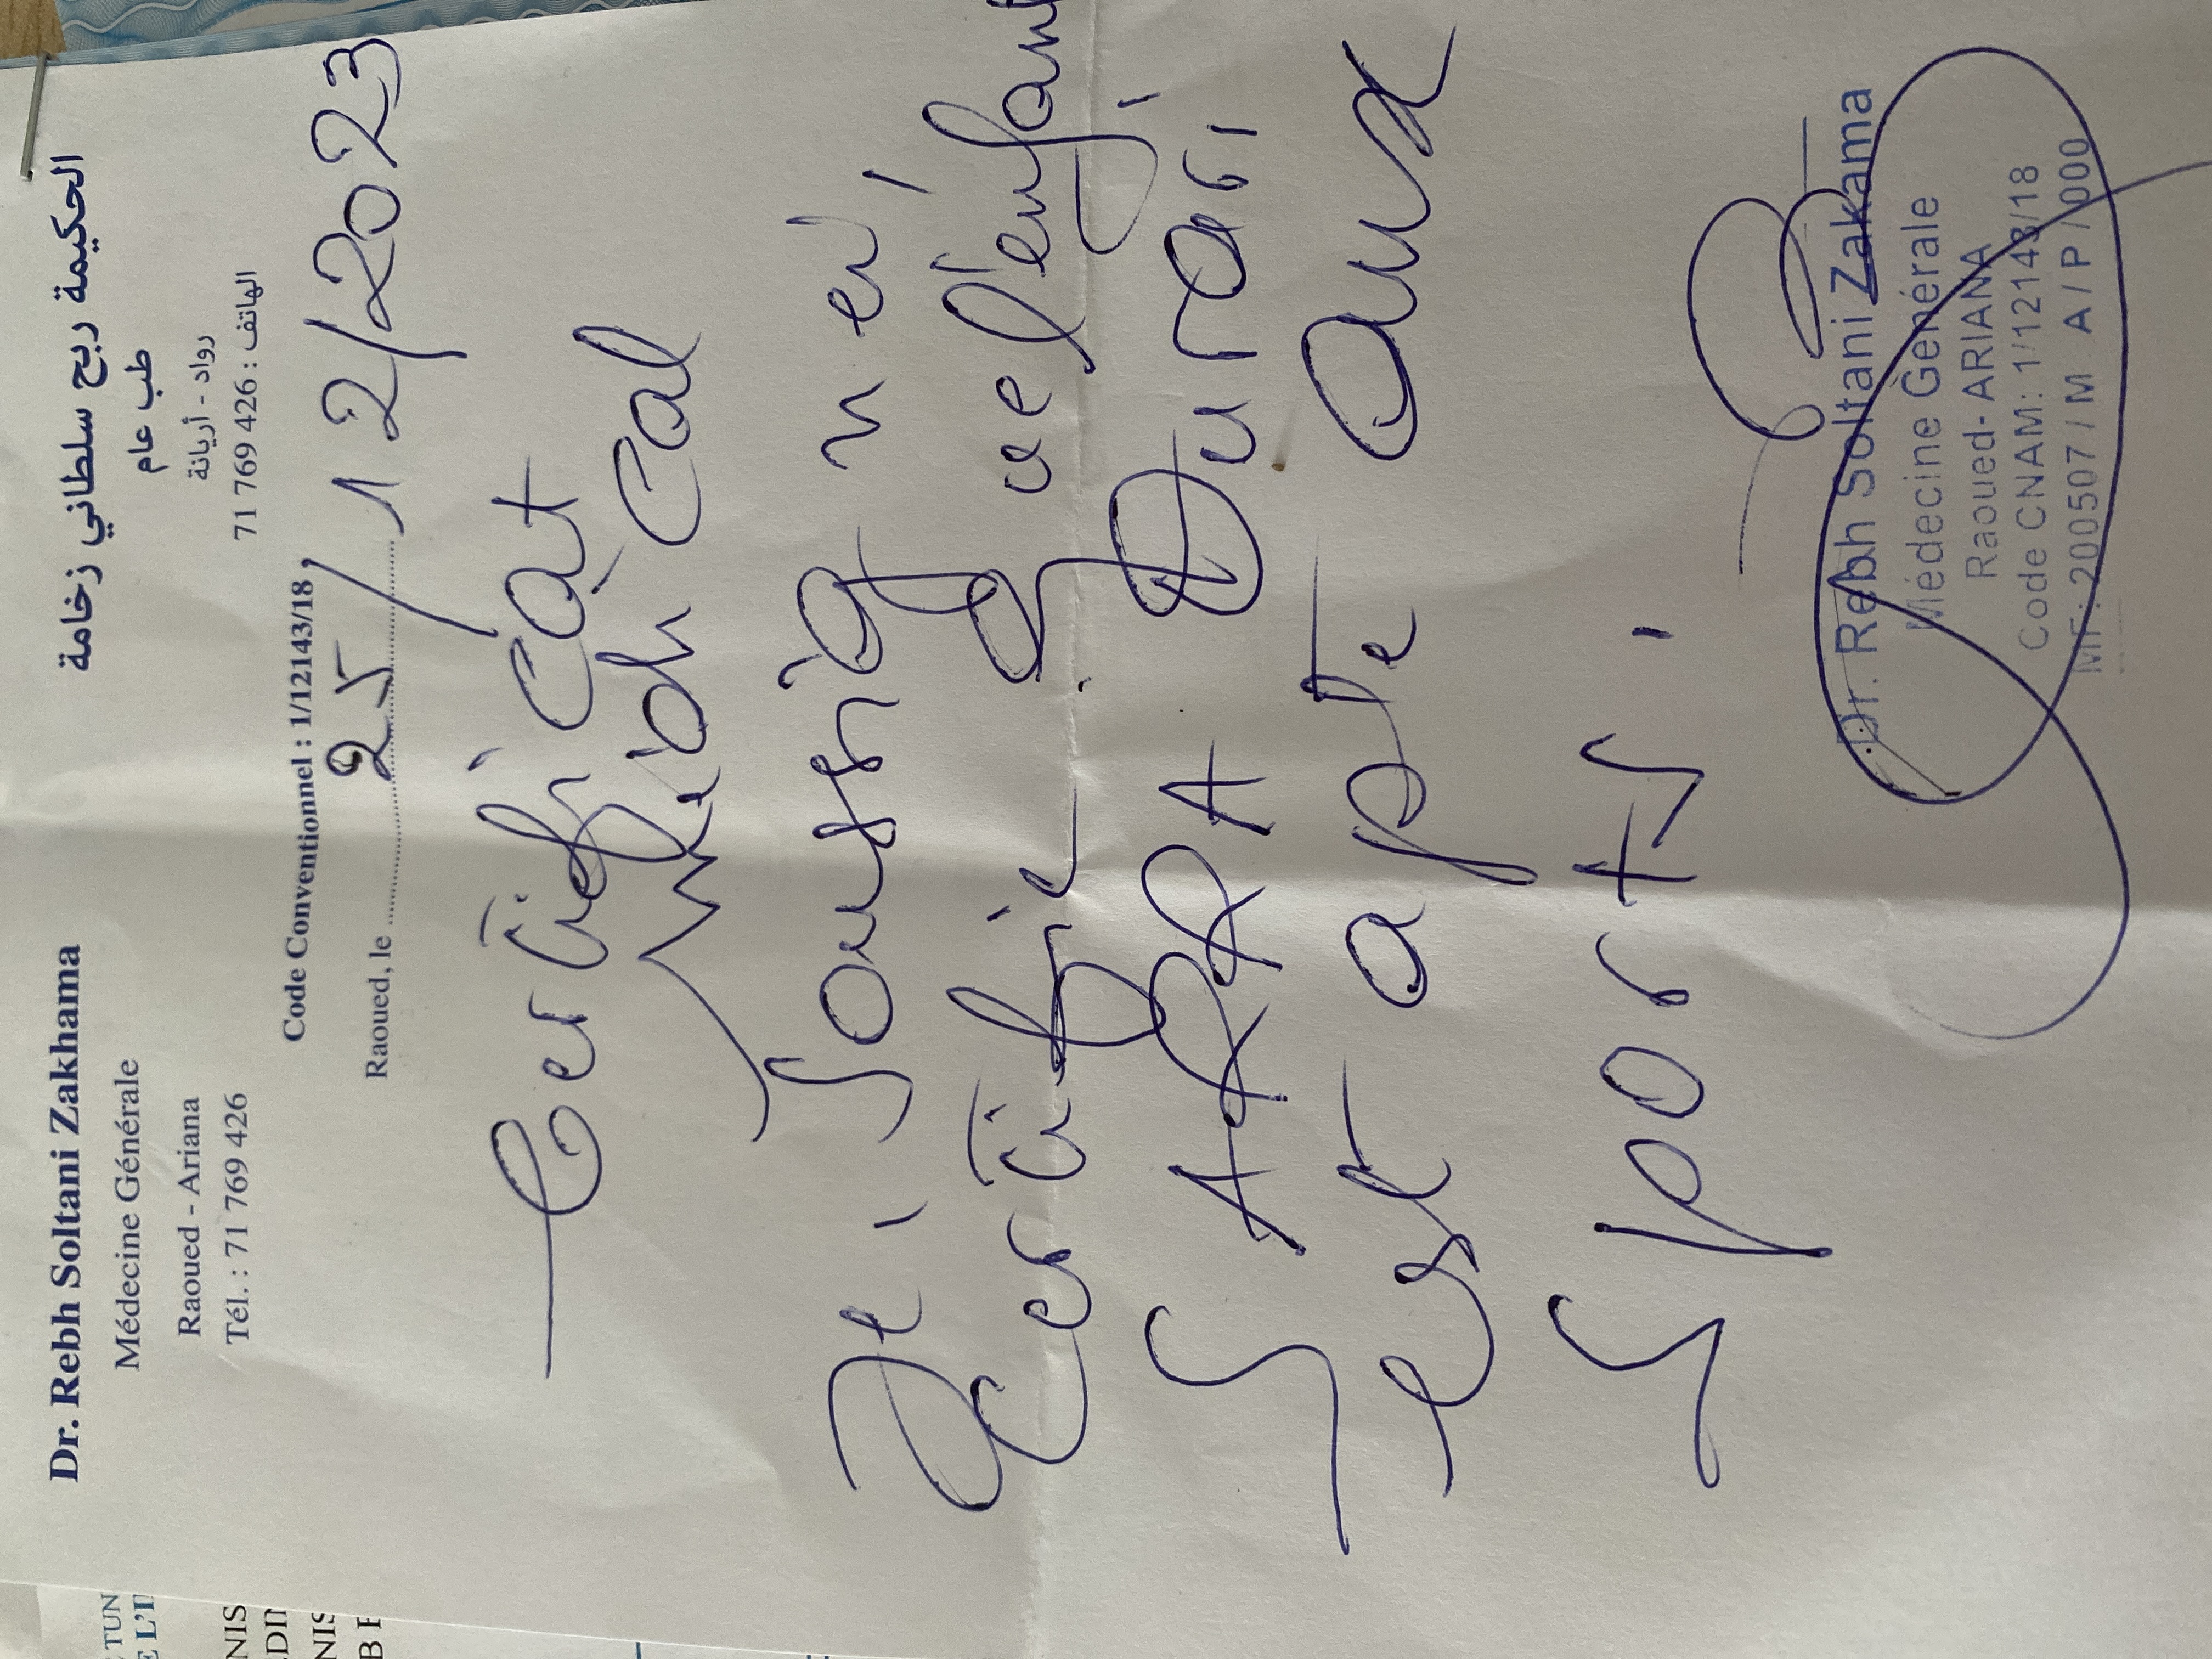 Dr. Rebh Soltani Zakhama
Médecine Générale
Raoued - Ariana
Tél. : 71 769 426
الحكيمة ربح سلطاني زخامة
طب عام
رواد - أريانة
الهاتف : 426 769 71
Code Conventionnel : 1/12143/18
Raoued, le 25/12/2023
Certificat
Médical
Je soussigné
certifie que l'enfant
SARRA Durai
est apte aux
sports.
Dr. Rebh Soltani Zakama
Médecine Générale
Raoued- ARIANA
Code CNAM: 1/12143/18
MF: 200507 / M A / P / 000
TUN
E L'I
NIS
DII
NIS
B F